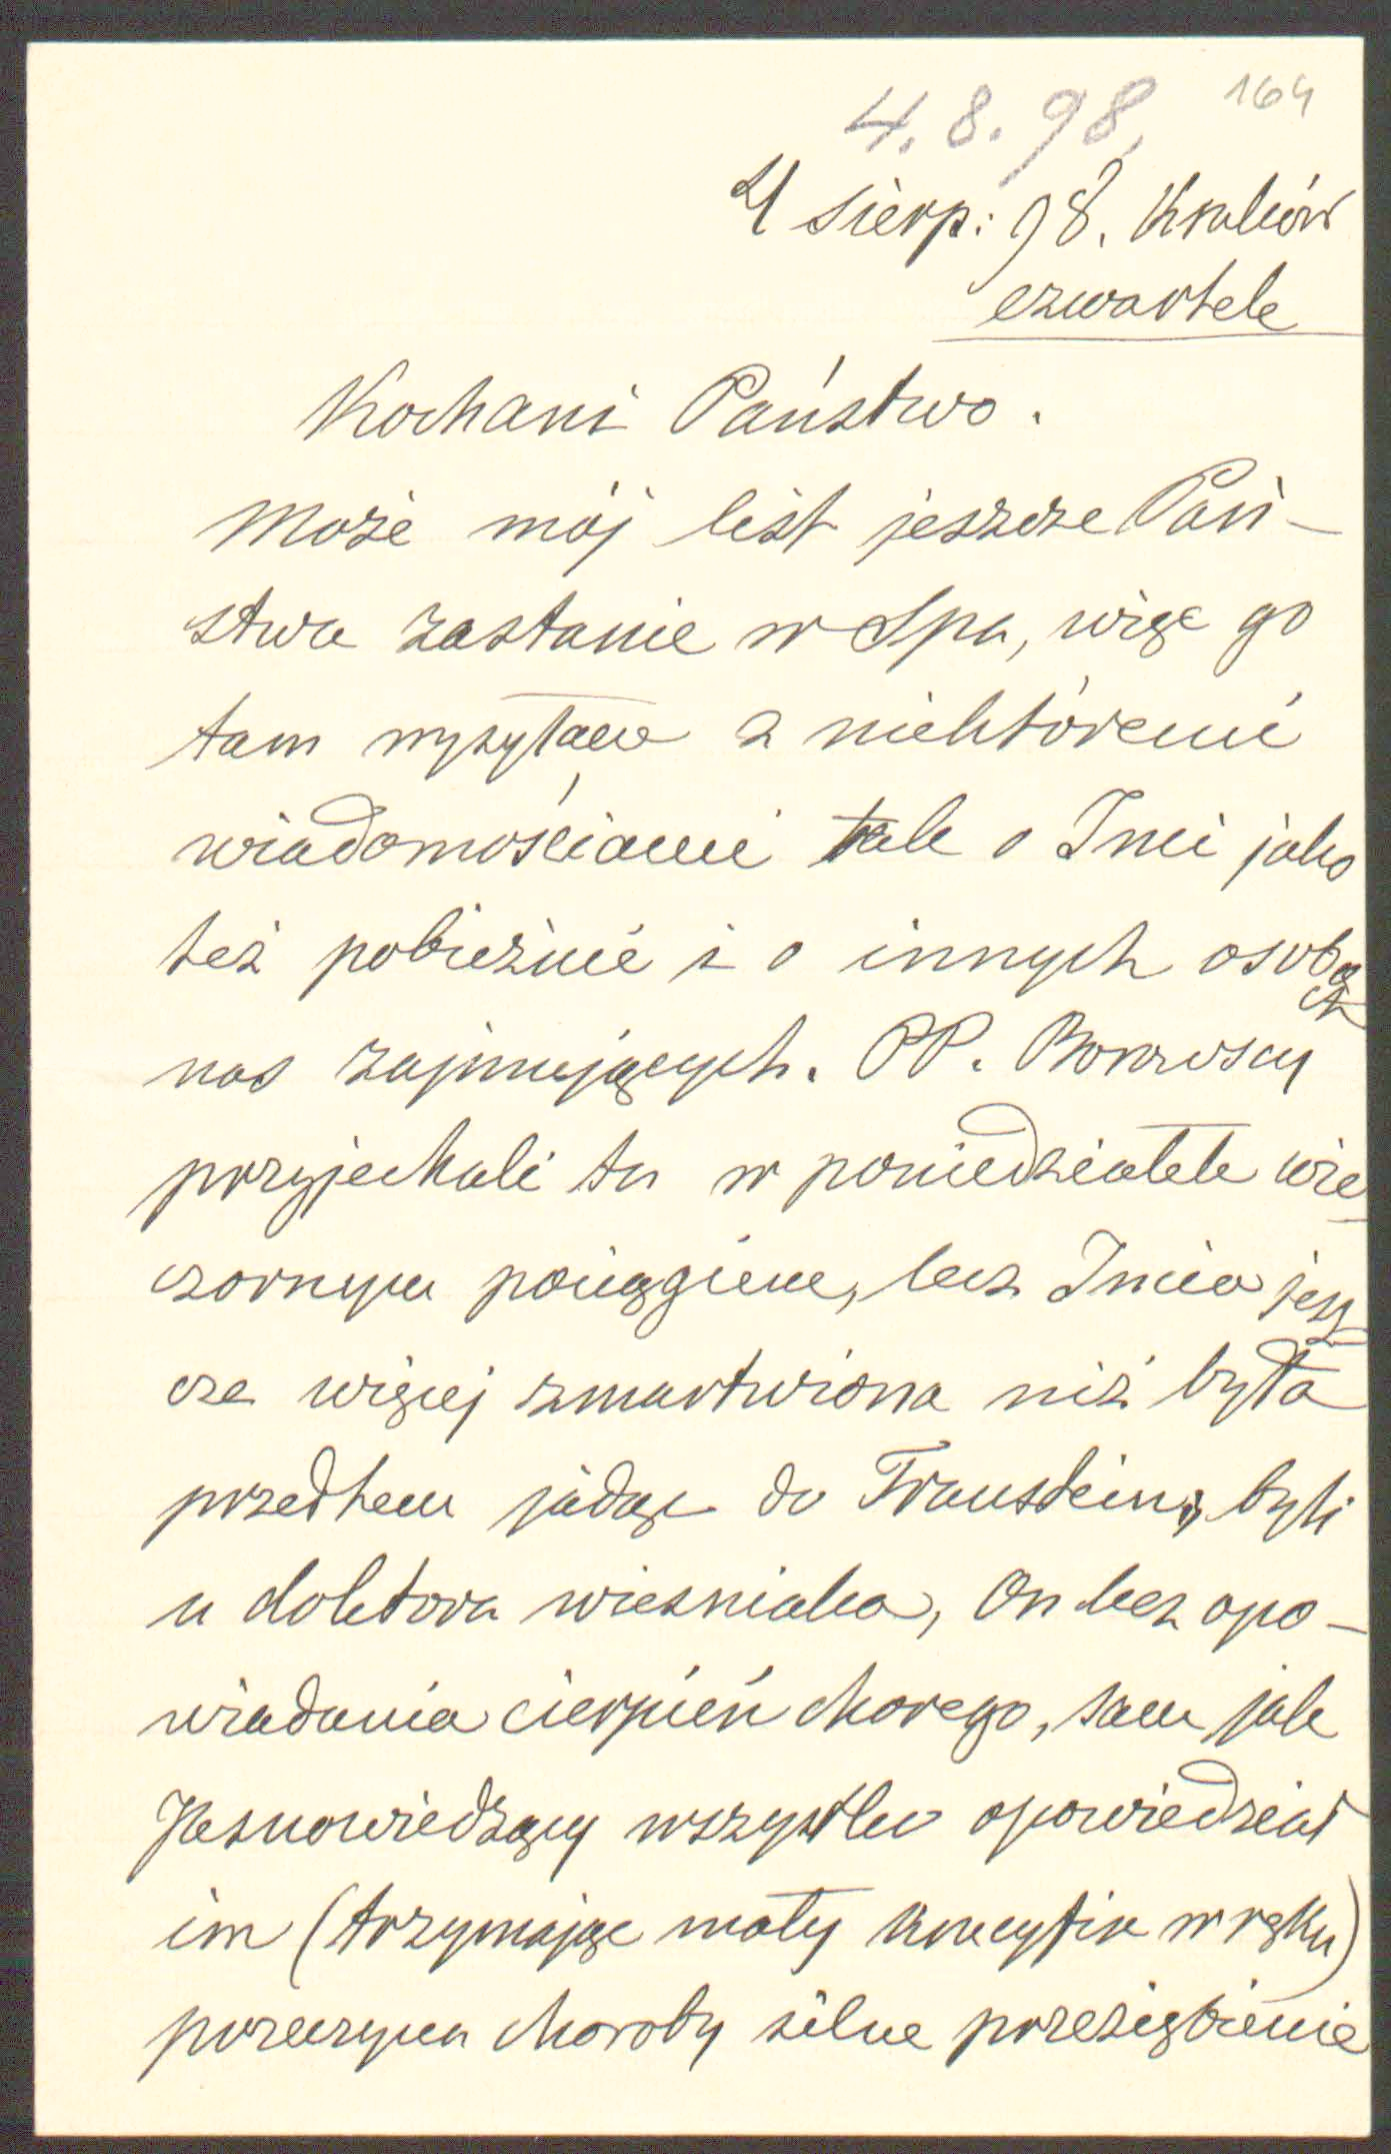 164
4.8.98.
4 sierp: 98. Kraków
czwartek
Kochani Państwo.
Może mój list jeszcze Pań-
stwa zastanie w Spa, więc go
tam wysyłam z niektóremi
wiadomościami tak o Imci jako
też pobieżnie i o innych osobach
nas zajmujących. PP.
przyjechali tu w poniedziałek wie-
czornym pociągiem, lecz Imcia jesz-
cze więcej zmartwiona niż była
przedtem jadąc do Traustein, byli
u doktora wieśniaka, On bez opo-
wiadania cierpień chorego, sam jak
Jasnowiedzący wszystko opowiedział
im (trzymając mały w ręku)
przyczyna choroby silne przeziębienie